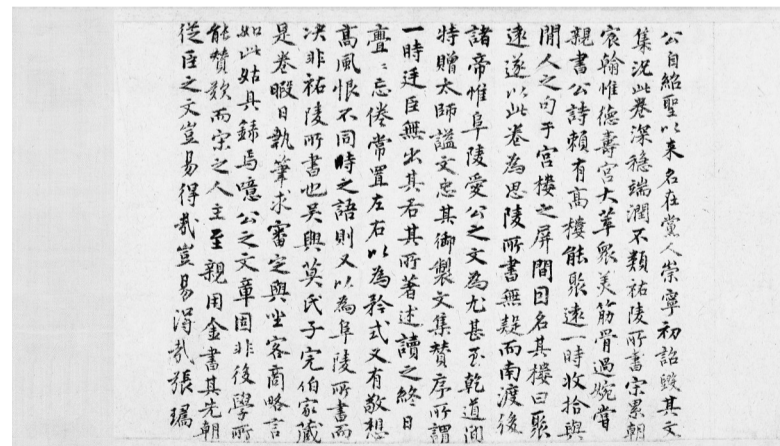 公自紹聖以来名在黨人崇寧初詔毀其文
集況此卷深穏端潤不類祐陵所書宋累朝
宸翰惟德壽宮大萃眾美筋骨過婉嘗
親書公詩頼有高樓能聚遠一時收拾與
閒人之句于宮樓之屏間因名其樓曰聚
遠遂以此卷為思陵所書無疑而南渡後
諸帝惟阜陵愛公之文為尤甚至乾道間
特贈太師謚文忠其御製文集賛序所謂
一時廷臣無出其右其所著述讀之終日
亹〻忘倦常置左右以為矜式又有敬想
高風恨不同時之語則又以為阜陵所書而
决非祐陵所書也吴興莫氏子完伯家藏
是卷暇日執筆求審定與坐客商略言
如此姑具錄焉噫公之文章固非後學所
能賛歎而宋之人主至親用金書其先朝
從臣之文豈易得㦲豈易得㦲張瑀